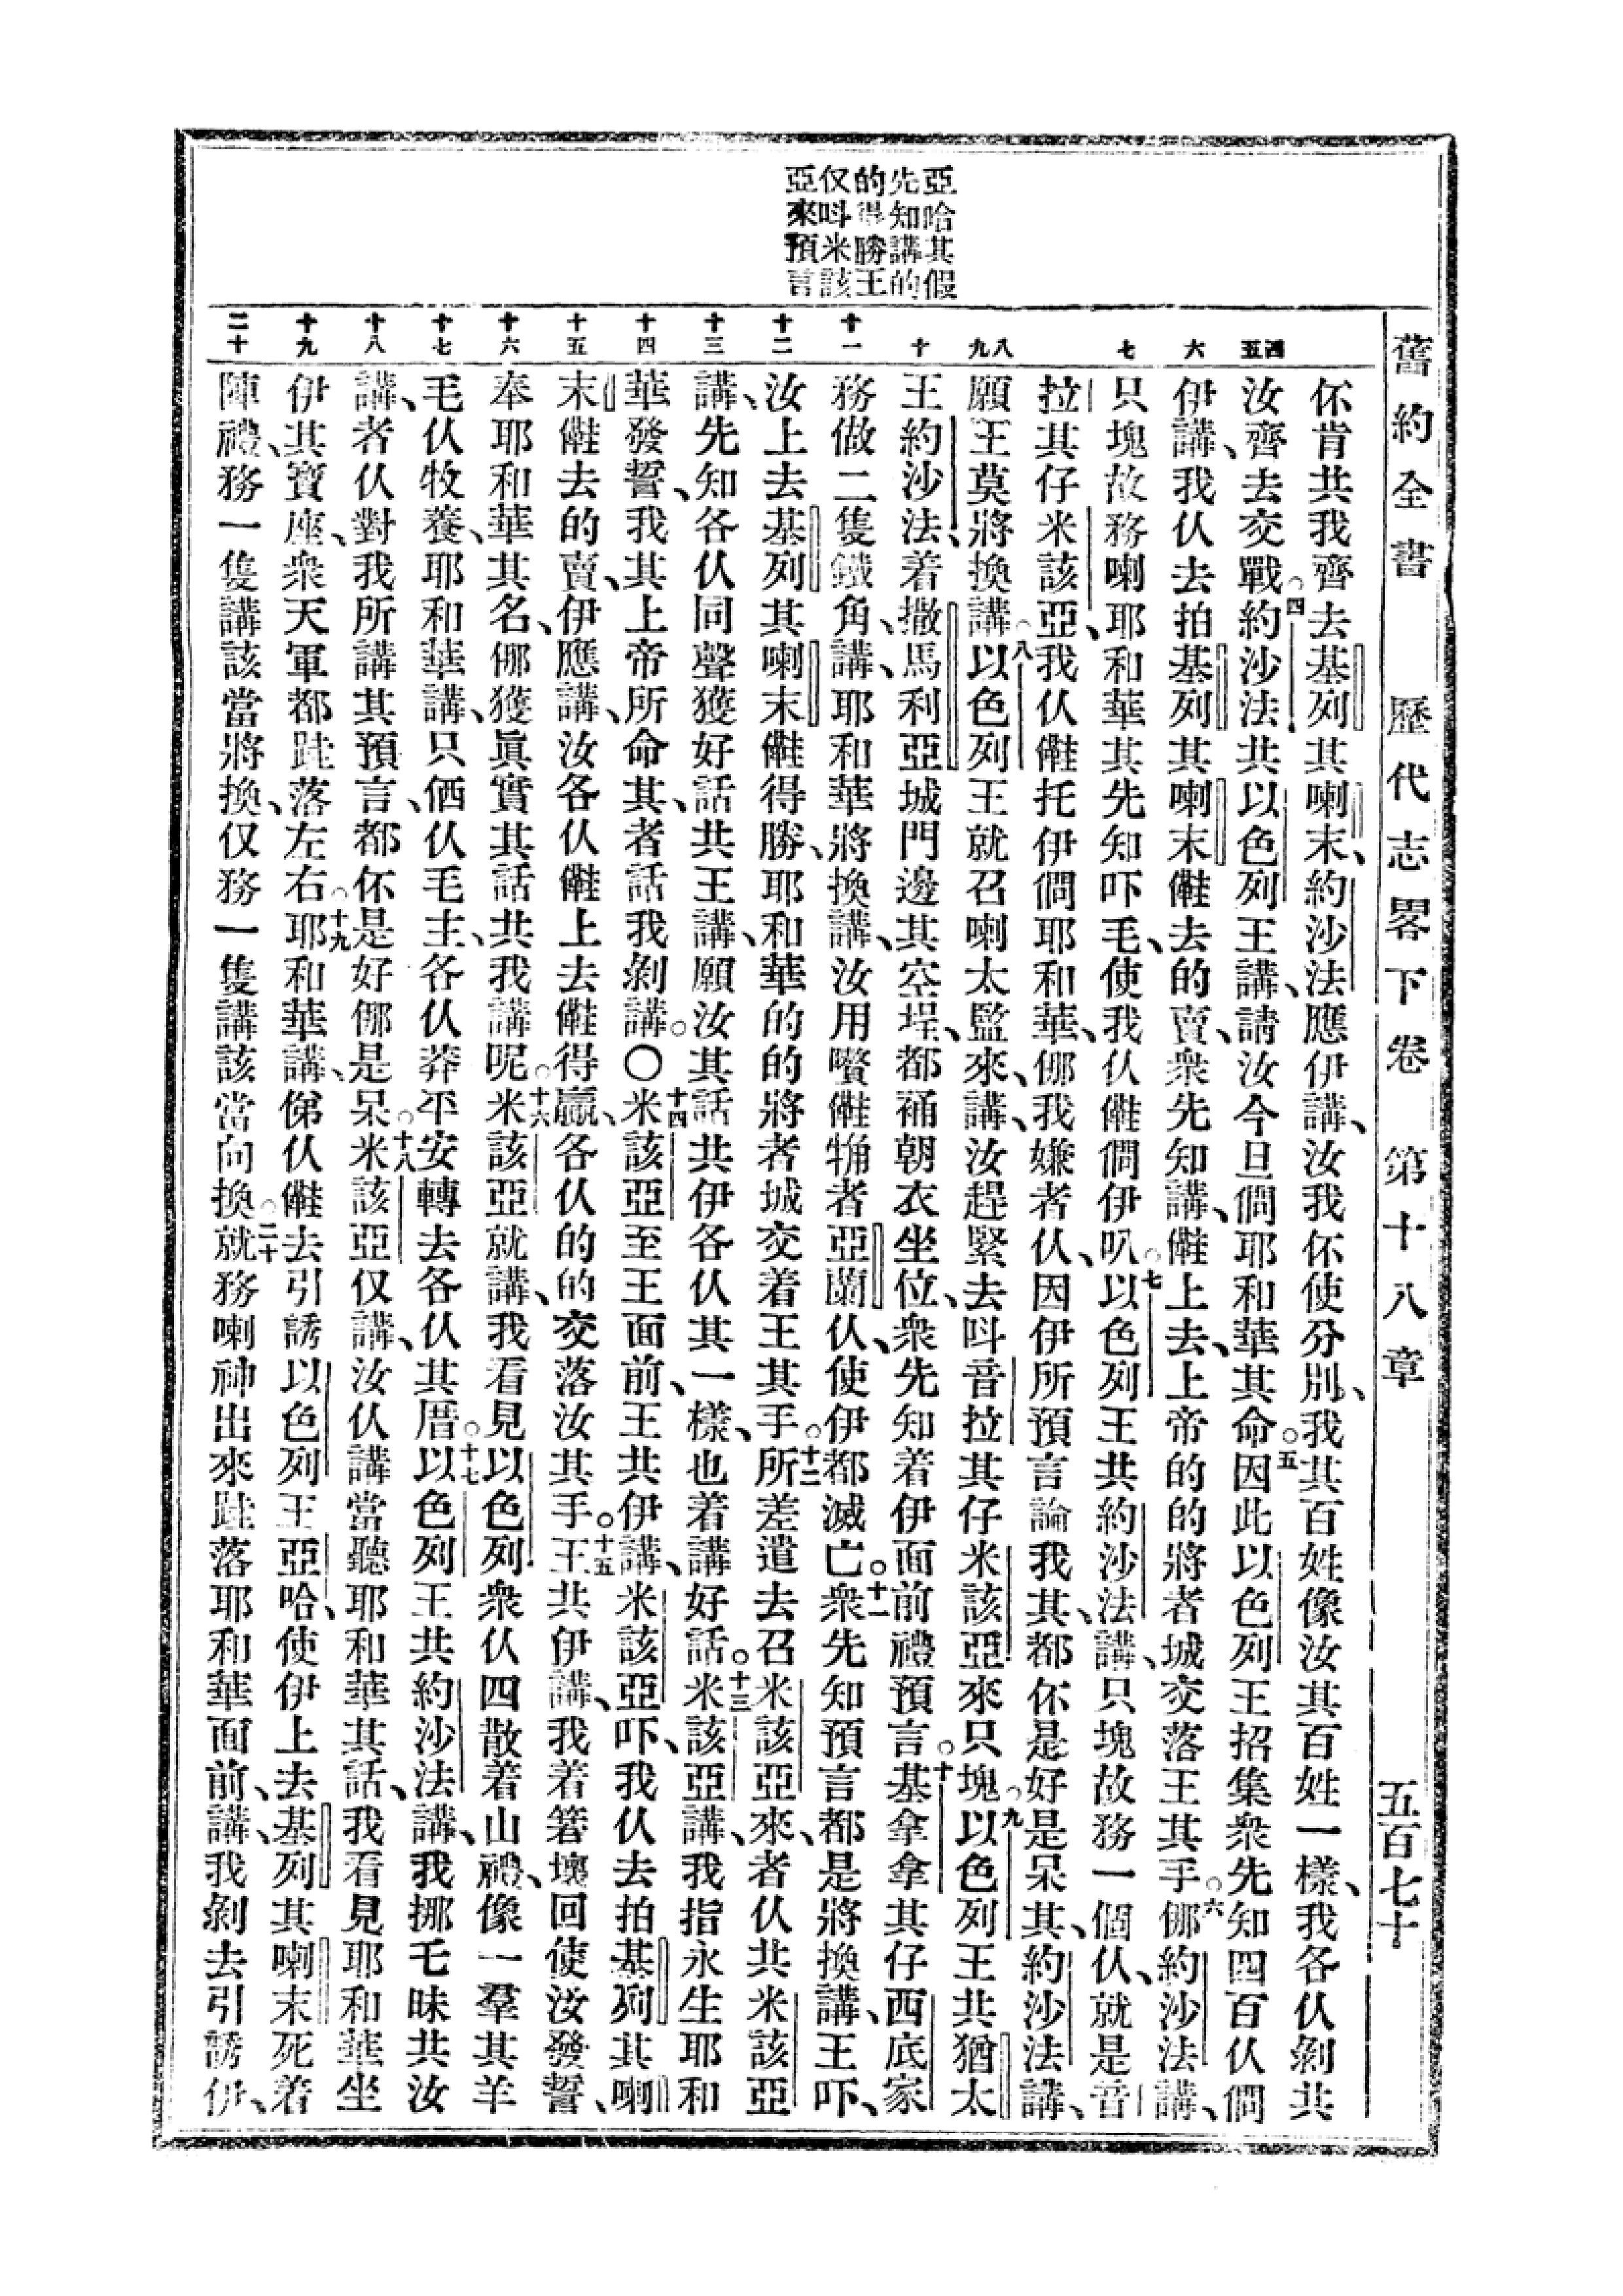 舊約全書 歷代志畧下卷 第十八章 五百七十
亞哈其假
先知講的
的得勝王
仅呌米該
亞來預言
四五 六 七 八九 十 十一 十二 十三 十四 十五 十六 十七 十八 十九 二十
伓肯共我齊去基列其喇末、約沙法應伊講、汝我伓使分別、我其百姓像汝其百姓一樣、我各仈剝共
汝齊去交戰○四約沙法共以色列王講、請汝今旦僩耶和華其命○五因此以色列王招集衆先知四百仈僩
伊講、我仈去拍基列其喇末㒲去的賣、衆先知講、㒲上去、上帝的的將者城交落王其手○六倻約沙法講、
只塊故務喇耶和華其先知吓毛、使我仈㒲僩伊叭○七以色列王共約沙法講、只塊故務一個仈、就是音
拉其仔米該亞、我仈㒲托伊僩耶和華、倻我嫌者仈、因伊所預言論我其、都伓是好是呆其、約沙法講、
願王莫將換講○八以色列王就召喇太監來、講、汝趕緊去呌音拉其仔米該亞來只塊○九以色列王共猶太
王約沙法、着撒馬利亞城門邊其空埕、都補朝衣坐位、衆先知着伊面前禮預言○十基拿拿其仔西底家
務做二隻鐵角、講、耶和華將換講、汝用嘐㒲觕者亞蘭仈、使伊都滅亡○十一衆先知預言都是將換講、王吓、
汝上去基列其喇末㒲得勝、耶和華的的將者城交着王其手○十二所差遣去召米該亞來、者仈共米該亞
講、先知各仈同聲獲好話共王講、願汝其話共伊各仈其一樣、也着講好話○十三米該亞講、我指永生耶和
華發誓、我其上帝所命其、者話我剝講。〇十四米該亞至王面前、王共伊講、米該亞吓、我仈去拍基列其喇
末㒲去的賣、伊應講、汝各仈㒲上去㒲得贏、各仈的的交落汝其手○十五王共伊講、我着箬壞回使汝發誓、
奉耶和華其名、倻獲眞實其話共我講呢○十六米該亞就講、我看見以色列衆仈四散着山禮、像一羣其羊
毛仈牧養、耶和華講、只侕仈毛主、各仈莽平安轉去各仈其厝○十七以色列王共約沙法講、我挪乇昧共汝
講、者仈對我所講其預言、都伓是好倻是呆○十八米該亞仅講、汝仈講當聽耶和華其話、我看見耶和華坐
伊其寶座、衆天軍都跬落左右○十九耶和華講、俤仈㒲去引誘以色列王亞哈、使伊上去基列其喇末死着
陣禮、務一隻講該當將換、仅務一隻講該當向換○二十就務喇神出來跬落耶和華面前、講、我剝去引誘伊、